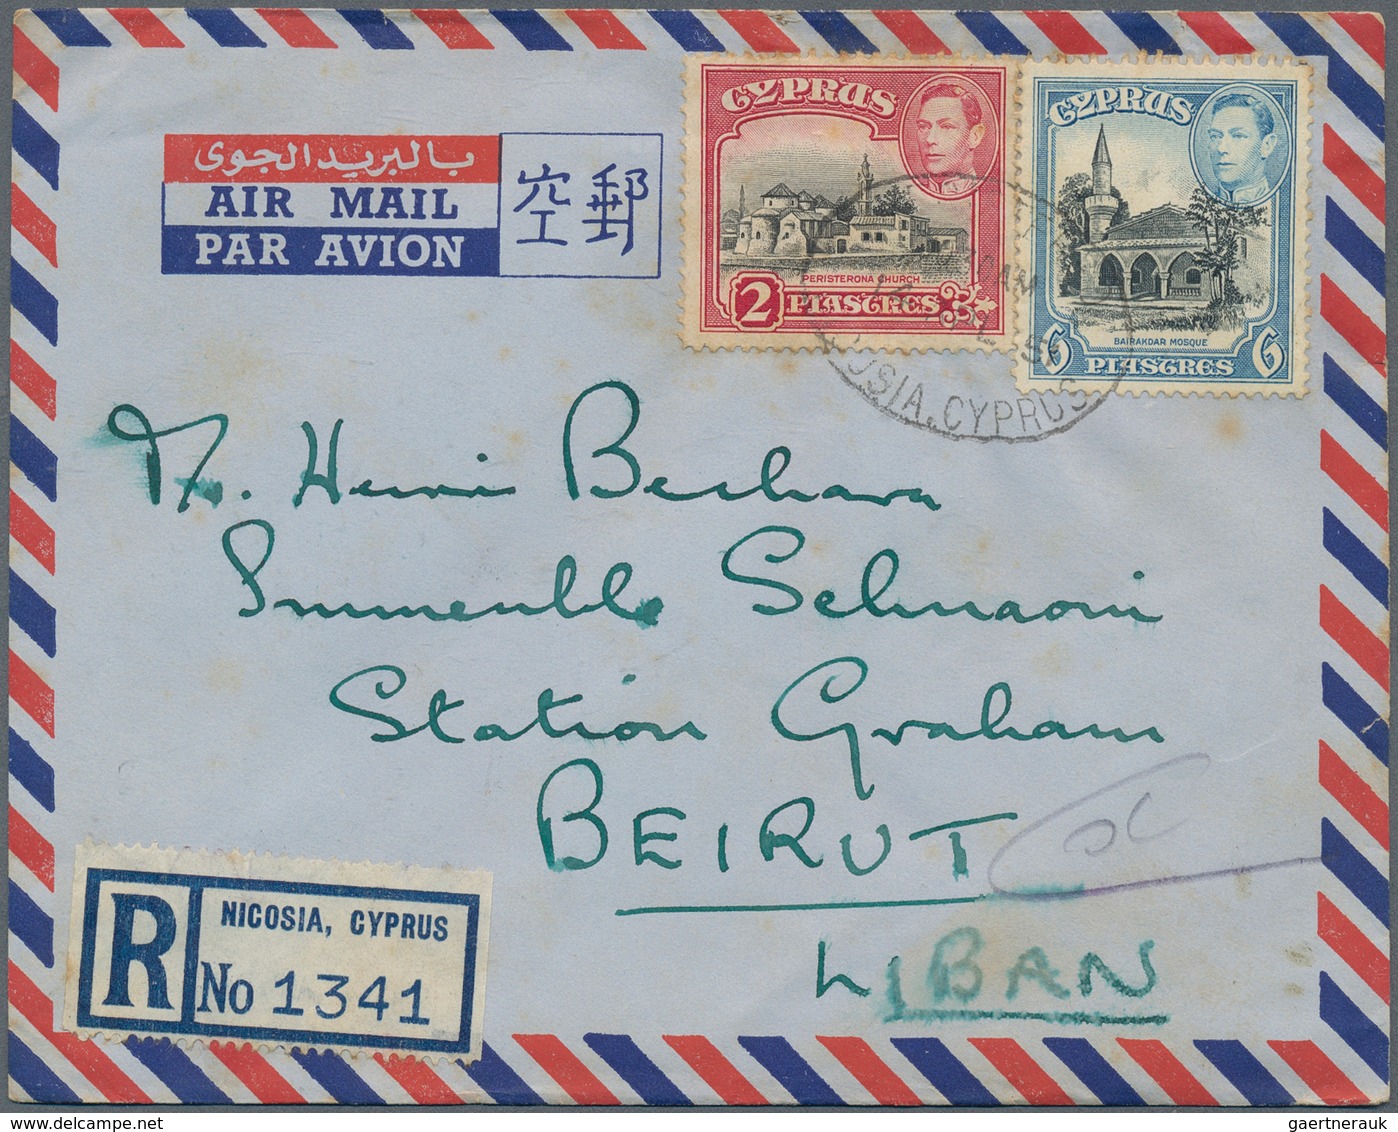 بالبريد الجوى
AIR MAIL
PAR AVION
空郵
CYPRUS
PERISTERONA CHURCH
2 PIASTRES
CYPRUS
BAIRAKDAR MOSQUE
6 PIASTRES 6
AM
14 51
OSIA. CYPRUS
M. Henri Beshara
Immeuble Sehnaoui
Station Graham
BEIRUT
LIBAN
R
NICOSIA, CYPRUS
No 1341
gaertnerauk